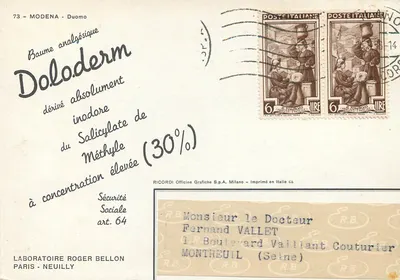 73 — MODENA - Duomo
Baume analgésique
Doloderm
dérivé absolument
inodore
du Salicylate de
Méthyle
à concentration élevée (30%)
Sécurité
Sociale
art. 64
LABORATOIRE ROGER BELLON
PARIS - NEUILLY
RICORDI Officine Grafiche S.p.A. Milano - Imprimé en Italie
POSTE ITALIANE
6 LIRE
POSTE ITALIANE
6 LIRE
Monsieur le Docteur
Fernand VALLET
11 Boulevard Vaillant Couturier
MONTREUIL (Seine)
R.B.